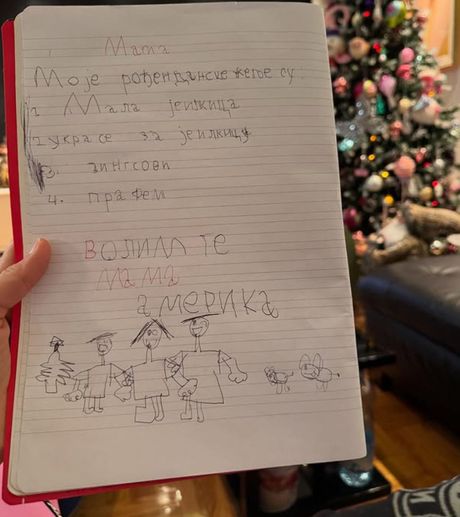 Мама
Моје рођенданске жеље су:
1 Мала јеилкица
2 украсе за јеилкицу
3. зингсови
4. прафем
ВОЛИМ ТЕ
МАМА
америка